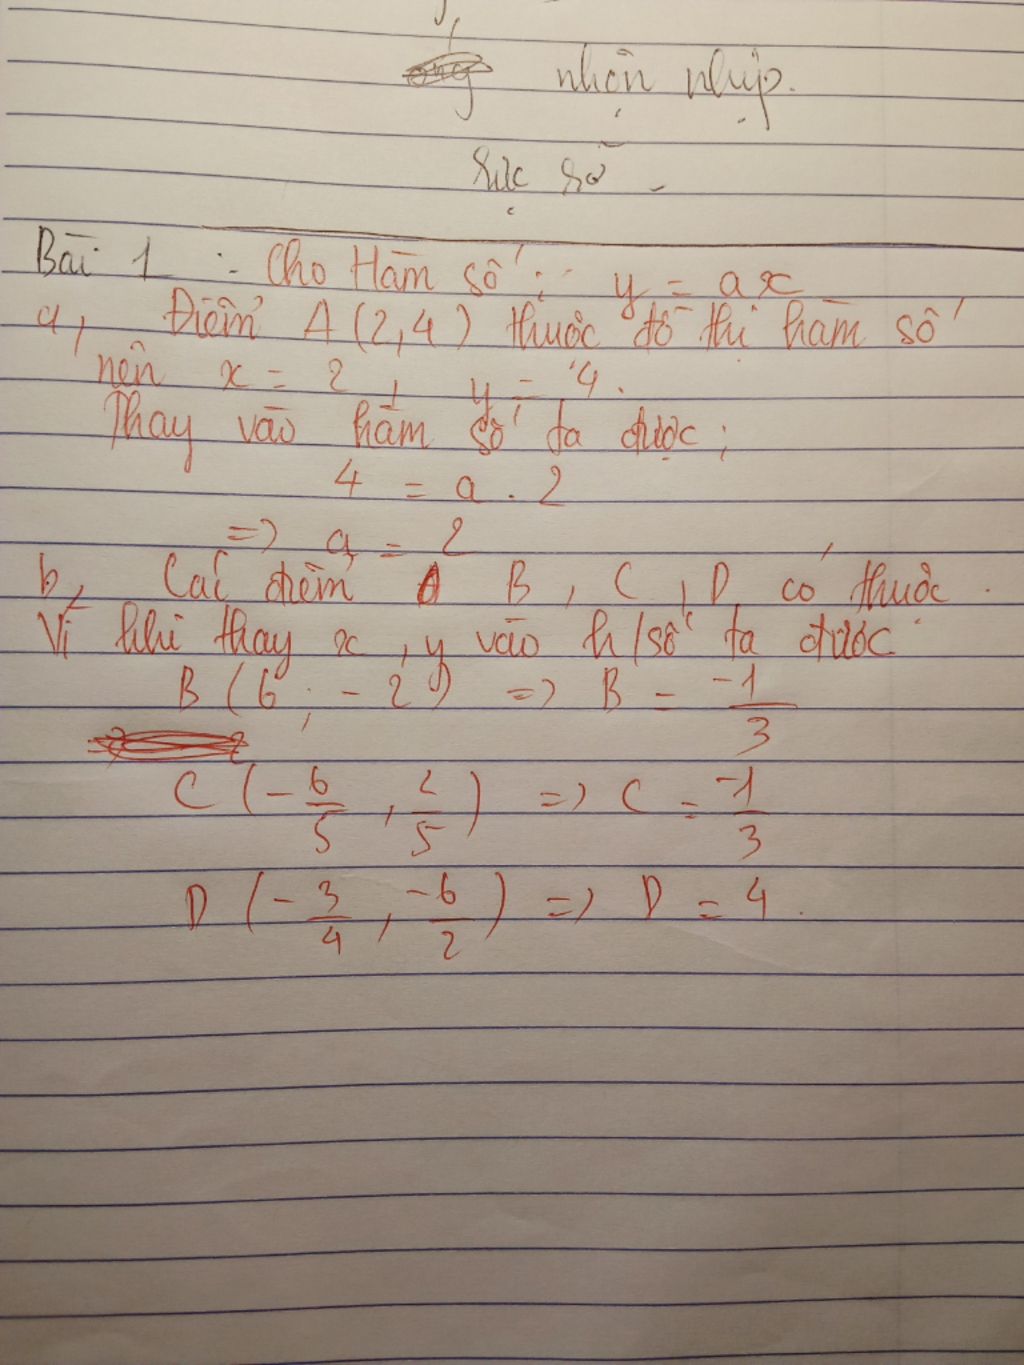 nhộn nhịp.
sực sỡ
Bài 1 : Cho Hàm số : y = ax
a, Điểm A (2,4) thuộc đồ thị hàm số
nên x = 2 , y = 4.
Thay vào hàm số ta được ;
4 = a . 2
=> a = 2
b, Các điểm B , C , D có thuộc .
Vì khi thay x , y vào h/số ta được
B (6 ; -2) => B = -1/3
C (-6/5 , 2/5) => C = -1/3
D (-3/4 , -6/2) => D = 4 .